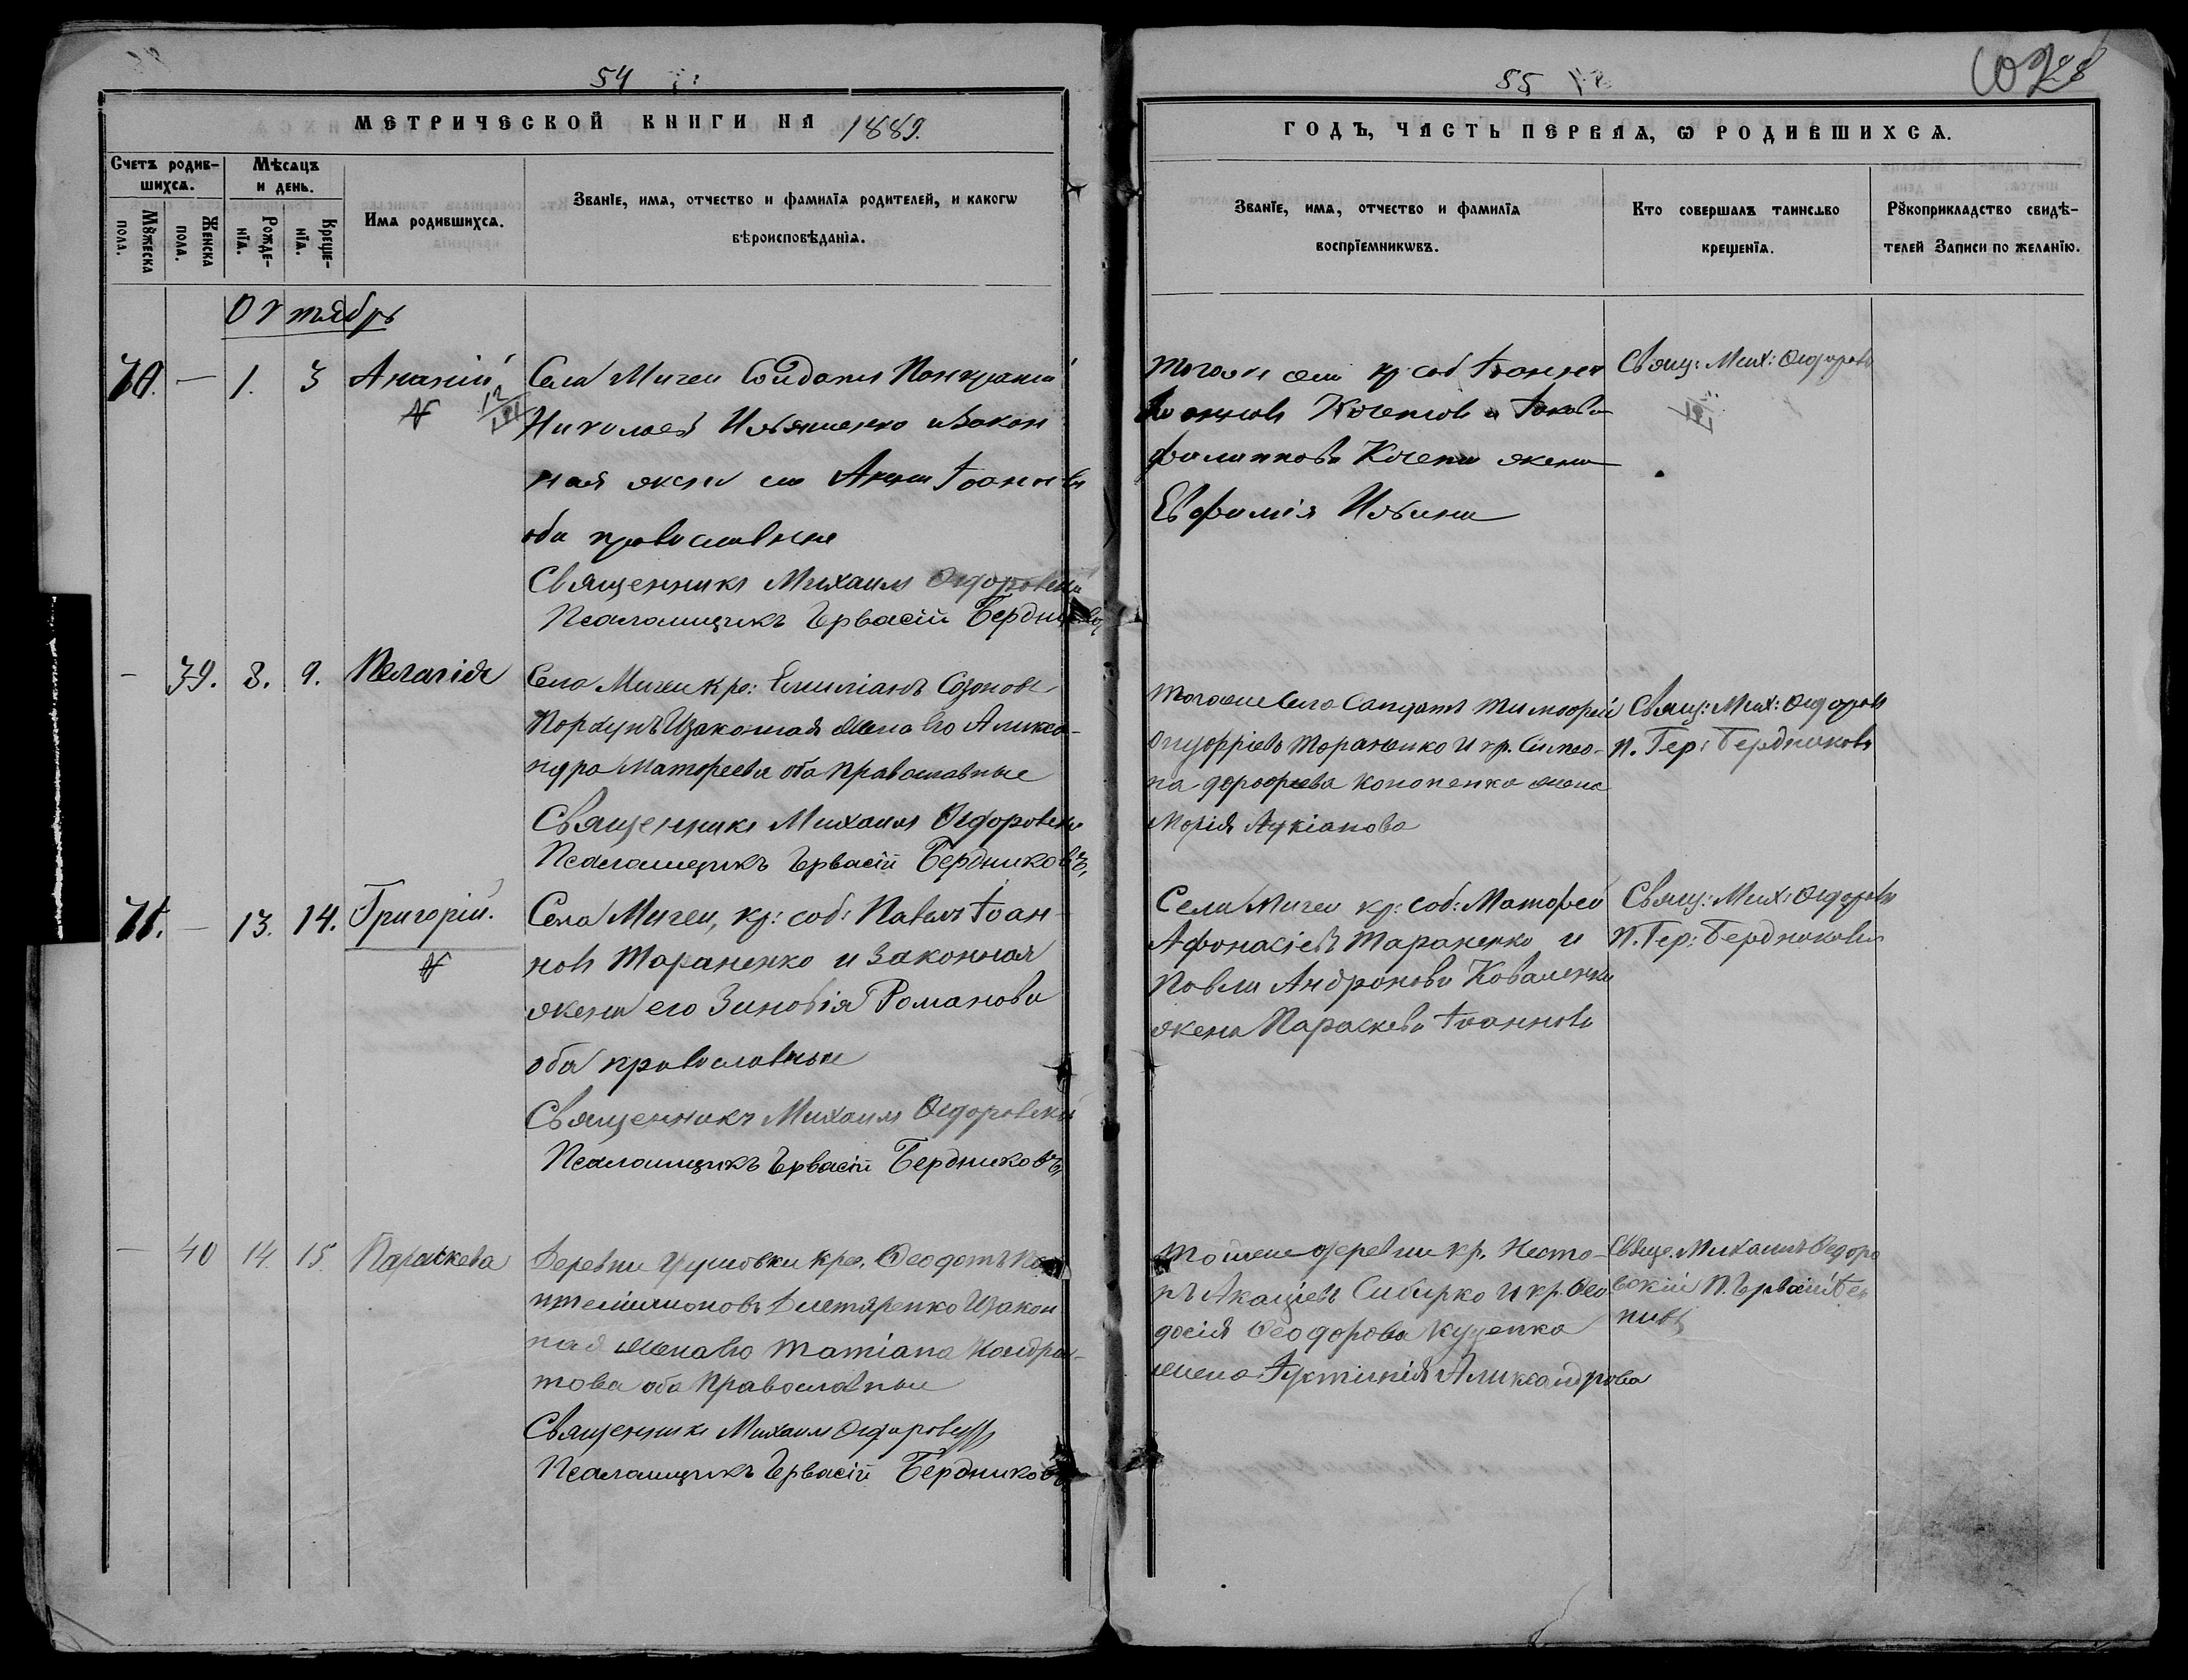 54
МЕТРИЧЕСКОЙ КНИГИ НА 1889.
Счетъ родив-
шихсѧ.
Мѣсѧцъ
и день.
Мꙋжеска
пола.
Женска
пола.
Рожде-
нїѧ.
Креще-
нїѧ.
Имѧ родившихсѧ.
Званїе, имѧ, отчество и фамилїѧ родителей, и какогѡ
вѣроисповѣданїѧ.
Октябрь
70. — 1. 3 Ананій
Села Мигеи Солдатъ Панкратій
Николаевъ Ильяшенко и закон
ная жена его Анна Іоаннова
оба православные
Священникъ Михаилъ Ѳедоровскій
Псаломщикъ Ервасій Бердниковъ
— 39. 8. 9. Пелагія
Села Мигеи кре: Емиліанъ Созоновъ
Изаконная жена его Алекса-
ндра Матфеева оба православные
Священникъ Михаилъ Ѳедоровскій
Псаломщикъ Ервасій Бердниковъ,
71. — 13. 14. Григорій.
Села Мигеи, кр: соб: Павелъ Іоан-
новъ Тараненко и законная
жена его Зиновія Романова
оба православные
Священникъ Михаилъ Ѳедоровскій
Псаломщикъ Ервасій Бердниковъ
— 40 14. 15. Параскева
Деревни кре. Ѳеодотъ Пан
телимоновъ Дегтяренко Изакон
ная жена его Татіана Кондра-
това оба Православные
Священникъ Михаилъ Ѳедоровскій
Псаломщикъ Ервасій Бердниковъ
85
ГОДЪ, ЧАСТЬ ПЕРВАѦ, Ѡ РОДИВШИХСѦ.
Званїе, имѧ, отчество и фамилїѧ
воспрїемникѡвъ.
Кто совершалъ таинство
крещенїѧ.
Рꙋкоприкладство свидѣ-
телей Записи по желанїю.
Тогоже села кр соб Іоаннъ
Іоанновъ и Іакова
Филиппова жена
Евфимія Ильина
Свящ: Мих: Ѳедоровъ
Тогоже села Салдатъ Тимофей
Онуфріевъ Тараненко И кр. Симео-
на дорофеева Кононенко жена
Марія Лукіанова
Свящ: Мих: Ѳедоровъ
П. Гер: Бердниковъ
Села Мигеи кр: соб: Матфей
Афонасіевъ Тараненко и
Павла Андронова Коваленка
жена Параскева Іоаннова
Свящ: Мих: Ѳедоровъ
П. Гер: Бердниковъ
Тойже деревни кр. Несто-
ръ Акакіевъ Сибирко И кр. Ѳео
досія Ѳеодорова Куценка
жена Іустинія Александрова
Свяще. Михаилъ Ѳедоро
вскій П. Ервасій Бер